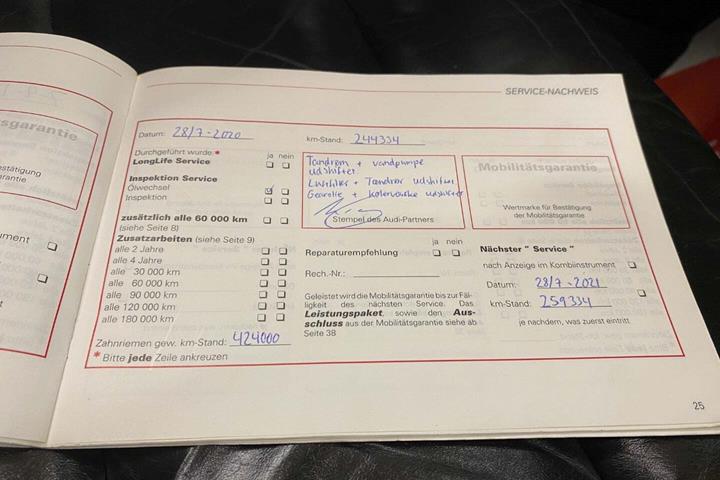 sgarantie
stätigung
rantie
ument
SERVICE-NACHWEIS
Datum: 28/7-2020
km-Stand: 244334
Durchgeführt wurde: *
ja nein
LongLife Service
Inspektion Service
Ölwechsel
Inspektion
zusätzlich alle 60 000 km
(siehe Seite 8)
Zusatzarbeiten (siehe Seite 9)
alle 2 Jahre
alle 4 Jahre
alle 30 000 km
alle 60 000 km
alle 90 000 km
alle 120 000 km
alle 180 000 km
Zahnriemen gew. km-Stand: 424000
* Bitte jede Zeile ankreuzen
Tandrem + vandpumpe
udskiftet
Luftfilter + Tandrør udskiftet
Gearolie + kølervæske udskiftet
Stempel des Audi-Partners
ja nein
Reparaturempfehlung
Rech.-Nr.:
Geleistet wird die Mobilitätsgarantie bis zur Fäl-
ligkeit des nächsten Service. Das
Leistungspaket, sowie den Aus-
schluss aus der Mobilitätsgarantie siehe ab
Seite 38
Mobilitätsgarantie
Wertmarke für Bestätigung
der Mobilitätsgarantie
Nächster " Service "
nach Anzeige im Kombiinstrument
Datum: 28/7-2021
km-Stand: 259334
je nachdem, was zuerst eintritt
25